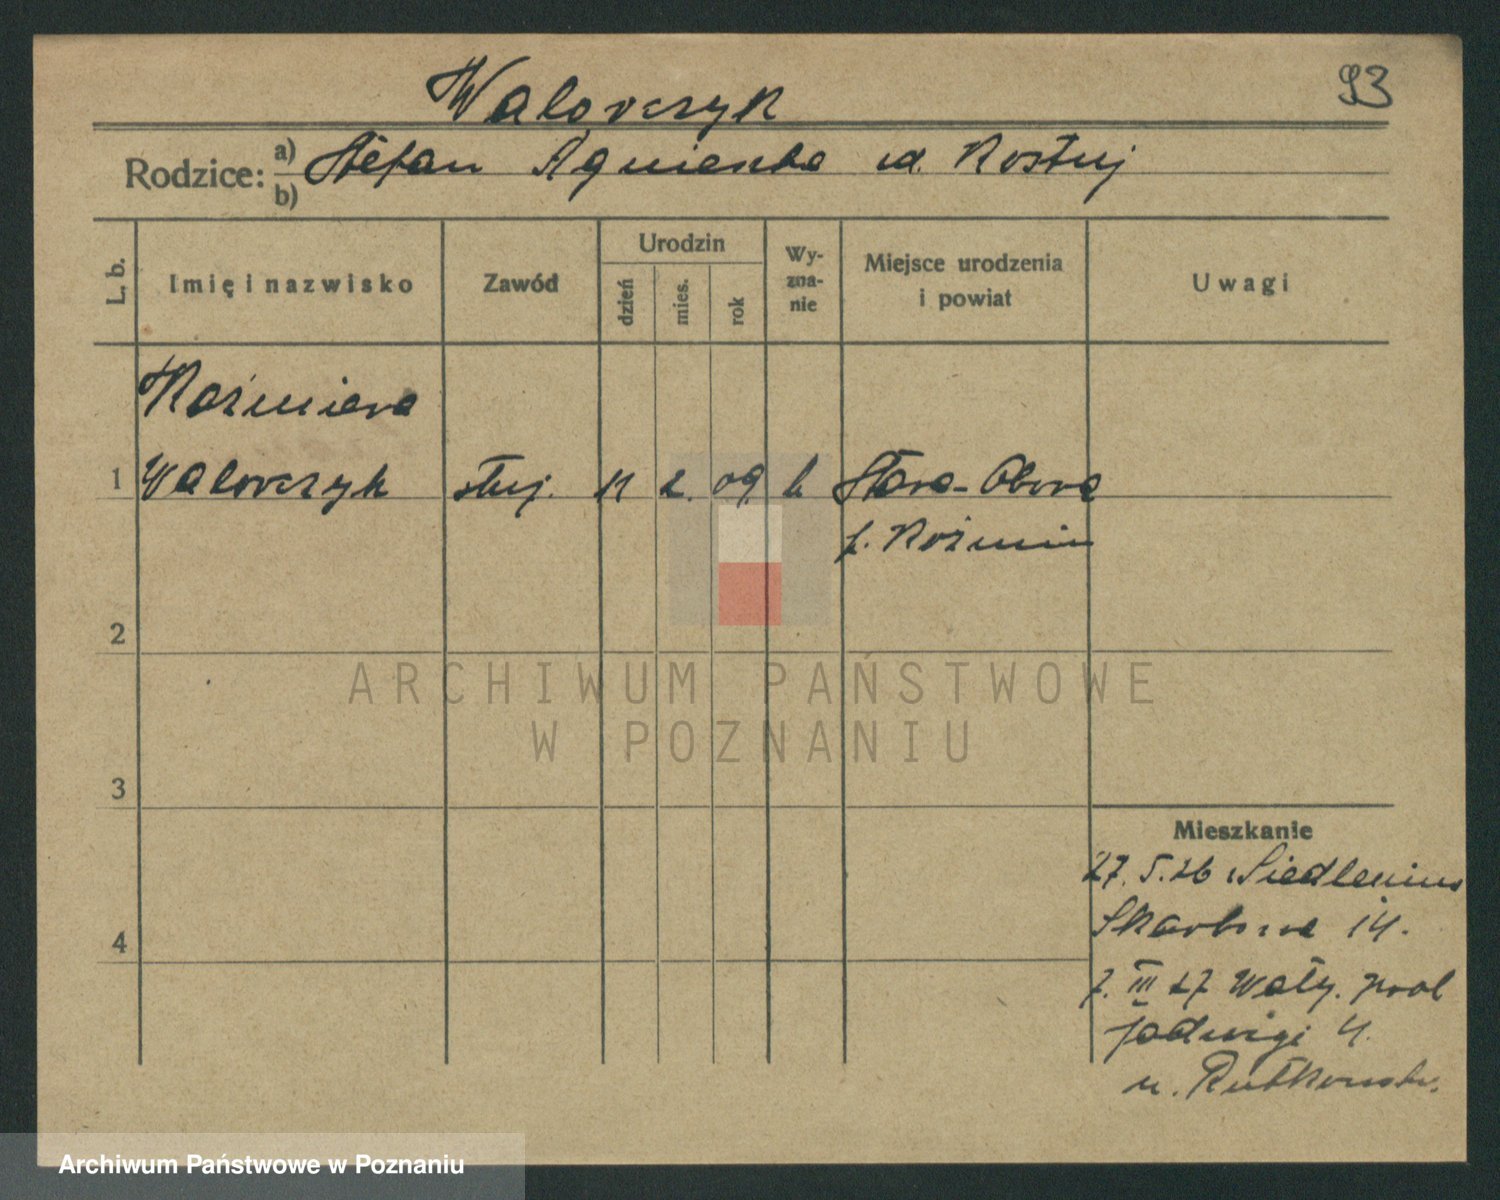 93
Walorczyk
Rodzice: a) Stefan Agnieszka ud. Rostuj
b)
L. b. Imię i nazwisko Zawód Urodzin dzień mies. rok Wy-zna-nie Miejsce urodzenia i powiat Uwagi
Kazimiera
1 Walorczyk służ. 11 2. 09. k Stara-Obora
p. Koźmin
2
3
Mieszkanie
27. 5. 26
Skarbowa 14.
4
7. III 27 Wały.
Jadwigi 4.
u.
ARCHIWUM PAŃSTWOWE
W POZNANIU
Archiwum Państwowe w Poznaniu